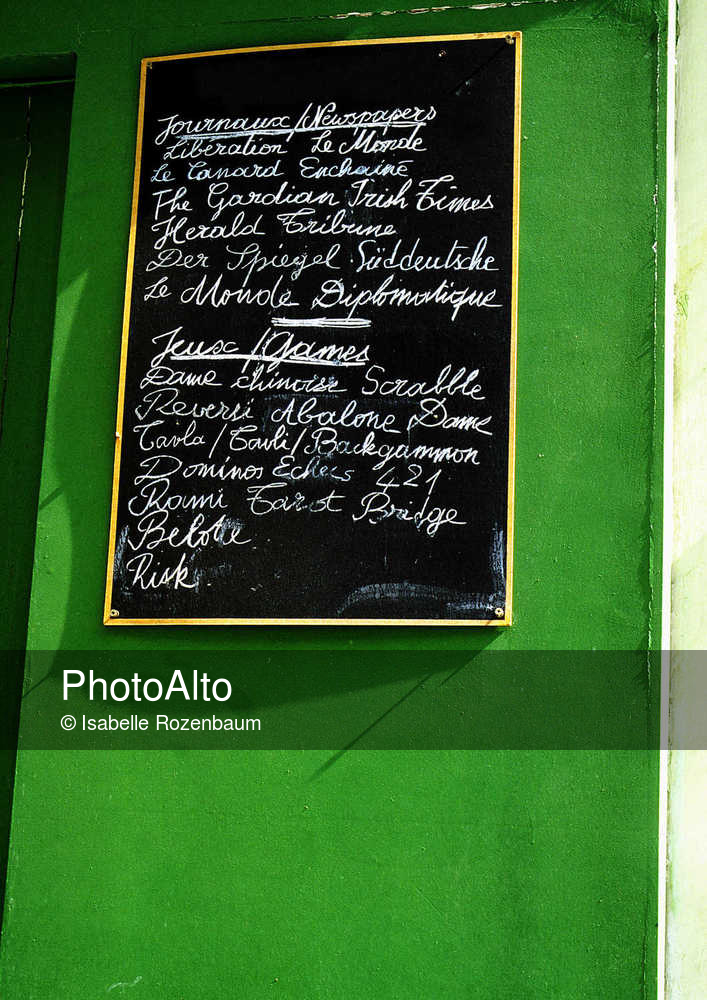 Journaux/Newspapers
Libération Le Monde
Le Canard Enchainé
The Gardian Irish Times
Herald Tribune
Der Spiegel Süddeutsche
Le Monde Diplomatique
Jeux/Games
Dame chinoise Scrabble
Reversi Abalone Dame
Tavla/Tavli/Backgammon
Dominos Echecs 421
Rami Tarot Bridge
Belote
Risk
PhotoAlto
© Isabelle Rozenbaum